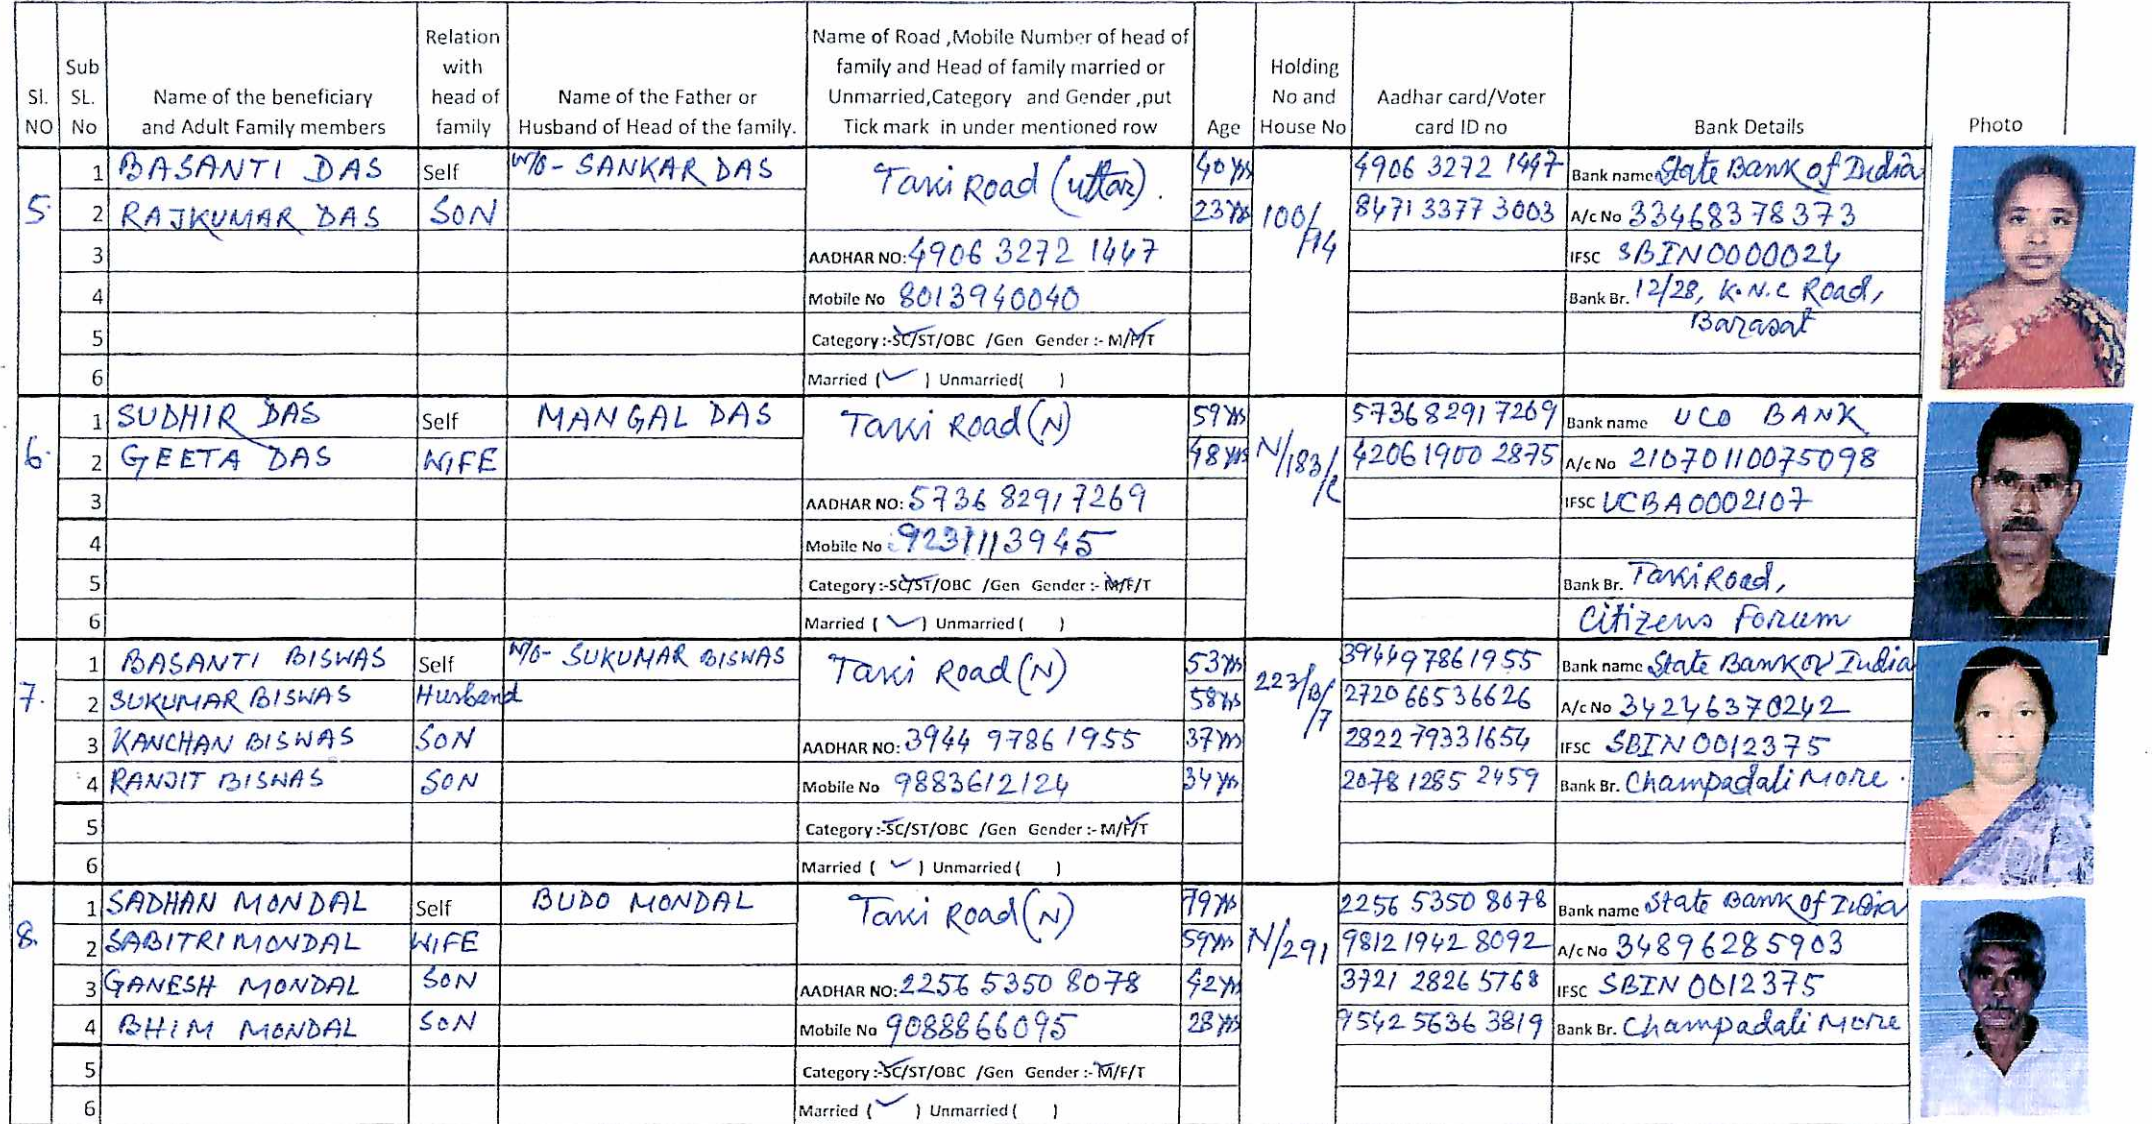 Sl. NO | Sub SL. No | Name of the beneficiary and Adult Family members | Relation with head of family | Name of the Father or Husband of Head of the family. | Name of Road ,Mobile Number of head of family and Head of family married or Unmarried,Category and Gender ,put Tick mark in under mentioned row | Age | Holding No and House No | Aadhar card/Voter card ID no | Bank Details | Photo
5. 1 BASANTI DAS Self W/O- SANKAR DAS Taki Road (uttar). 40 yrs 100/14 4906 3272 1447 Bank name State Bank of India
2 RAJKUMAR DAS SON 23 yrs 8471 3377 3003 A/c No 33468378373
3 AADHAR NO: 4906 3272 1447 IFSC SBIN0000024
4 Mobile No 8013940040 Bank Br. 12/28, K.N.C Road,
Barasat
5 Category :-SC/ST/OBC /Gen Gender :- M/F/T
6 Married ( ) Unmarried( )
6. 1 SUDHIR DAS Self MANGAL DAS Taki Road (N) 59 yrs 5736 8291 7269 Bank name UCO BANK
2 GEETA DAS WIFE 48 yrs 4206 1900 2875 A/c No 21070110075098
3 AADHAR NO: 5736 8291 7269 IFSC UCBA0002107
4 Mobile No 9231113945
5 Category :-SC/ST/OBC /Gen Gender :- M/F/T Bank Br. Taki Road,
6 Married ( ) Unmarried ( ) Citizens Forum
7. 1 BASANTI BISWAS Self W/O- SUKUMAR BISWAS Taki Road (N) 53 yrs 223/B/7 3944 9786 1955 Bank name State Bank of India
2 SUKUMAR BISWAS Husband 58 yrs 2720 6653 6626 A/c No 34246370242
3 KANCHAN BISWAS SON AADHAR NO: 3944 9786 1955 37 yrs 2822 7933 1654 IFSC SBIN0012375
4 RANJIT BISWAS SON Mobile No 9883612124 34 yrs 2078 1285 2459 Bank Br. Champadali More.
5 Category :-SC/ST/OBC /Gen Gender :- M/F/T
6 Married ( ) Unmarried ( )
8. 1 SADHAN MONDAL Self BUDO MONDAL Taki Road (N) 79 yrs N/291 2256 5350 8078 Bank name State Bank of India
2 SABITRI MONDAL WIFE 59 yrs 9812 1942 8092 A/c No 34896285903
3 GANESH MONDAL SON AADHAR NO: 2256 5350 8078 42 yrs 3721 2826 5768 IFSC SBIN0012375
4 BHIM MONDAL SON Mobile No 9088866095 28 yrs 9542 5636 3819 Bank Br. Champadali More
5 Category :-SC/ST/OBC /Gen Gender :- M/F/T
6 Married ( ) Unmarried ( )